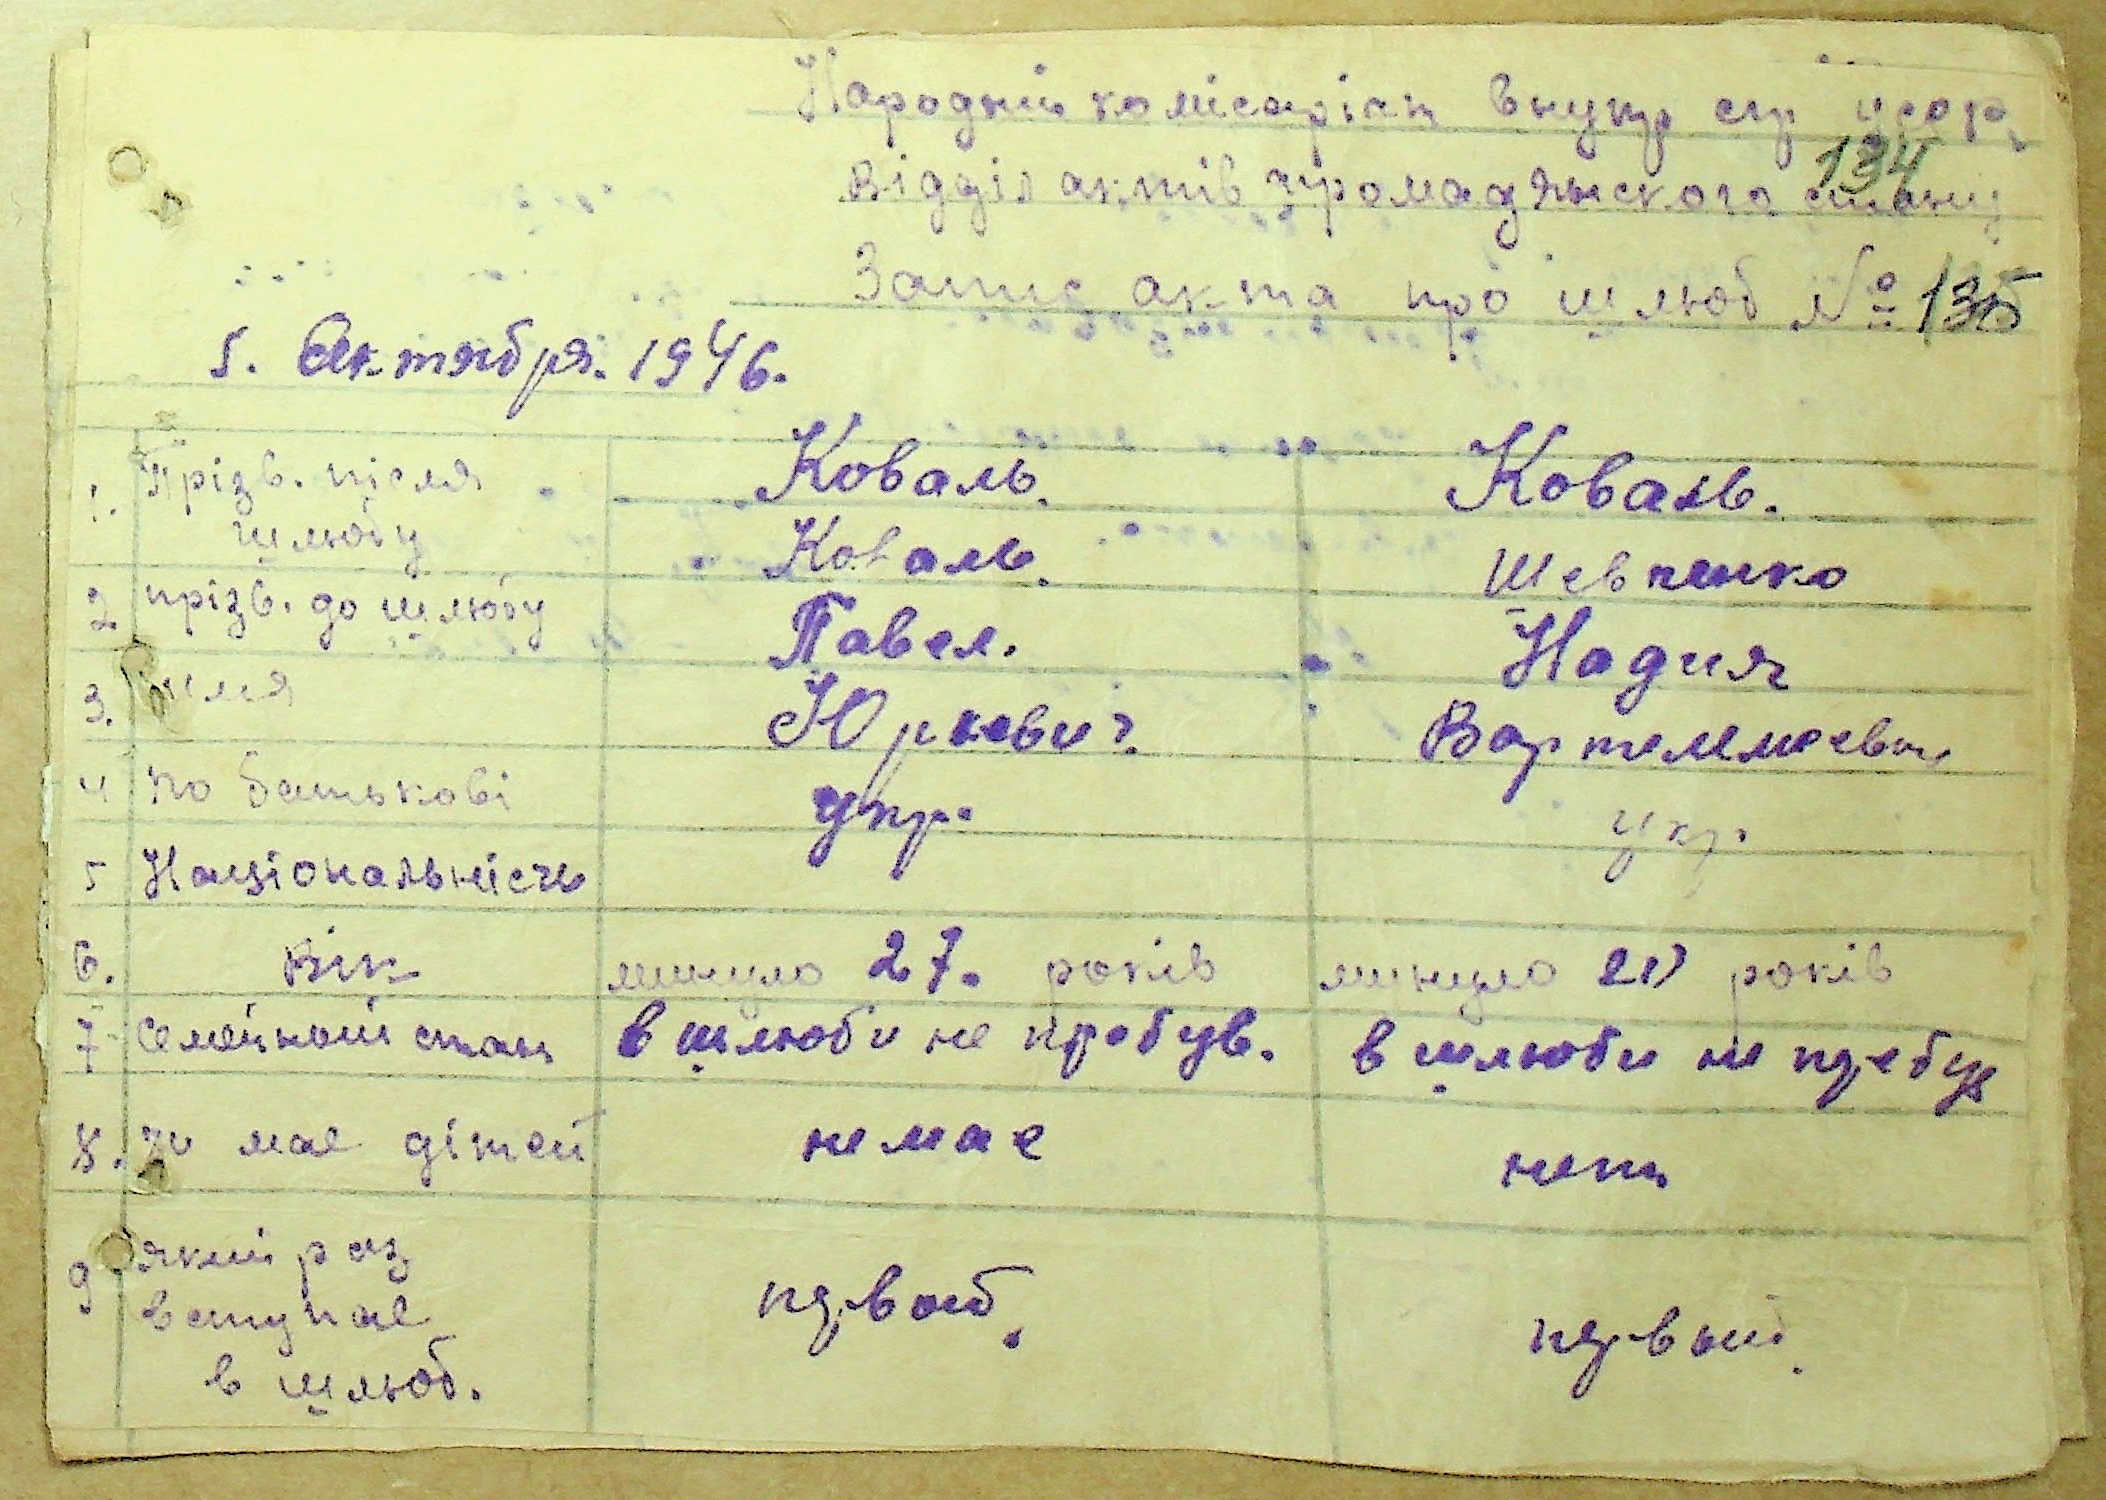 Народний комісаріат внутр спр
134
Відділ актів громадянського стану
Запис акта про шлюб № 135
5. Октября. 1946.
1. Прізв. після шлюбу Коваль. Коваль.
2 прізв. до шлюбу Коваль. Шевченко
3. имя Павел. Надия
4 по батькові Юрьевич. Вартеммеевна
5 Національність укр. укр.
6. Вік минуло 27. років минуло років
7 Семейный стан в шлюби не пребув. в шлюби не пребув
8. чи має дітей не має нет
9 який раз первый. первый.
вступає
в шлюб.